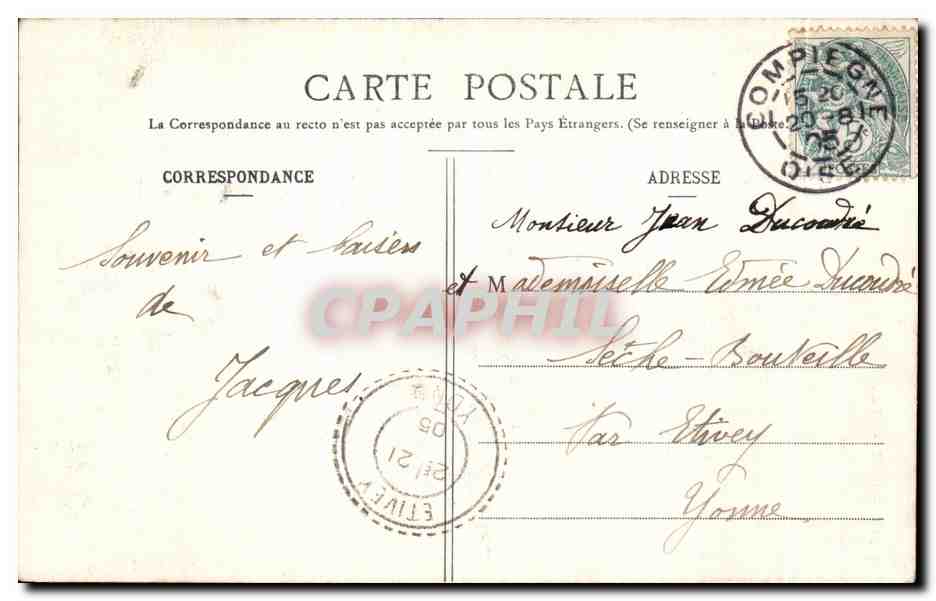 CARTE POSTALE
La Correspondance au recto n'est pas acceptée par tous les Pays Étrangers. (Se renseigner à la Poste.)
CORRESPONDANCE
Souvenir et baisers
de
Jacques.
ADRESSE
Monsieur Jean Ducoudré
et Mademoiselle Edmée Ducoudré
Sèche-Bouteille
Par Etivey
Yonne
COMPIEGNE
15 20
20 -8
05
OISE
5c
ETIVEY
21
05
YONNE
CPAPHIL